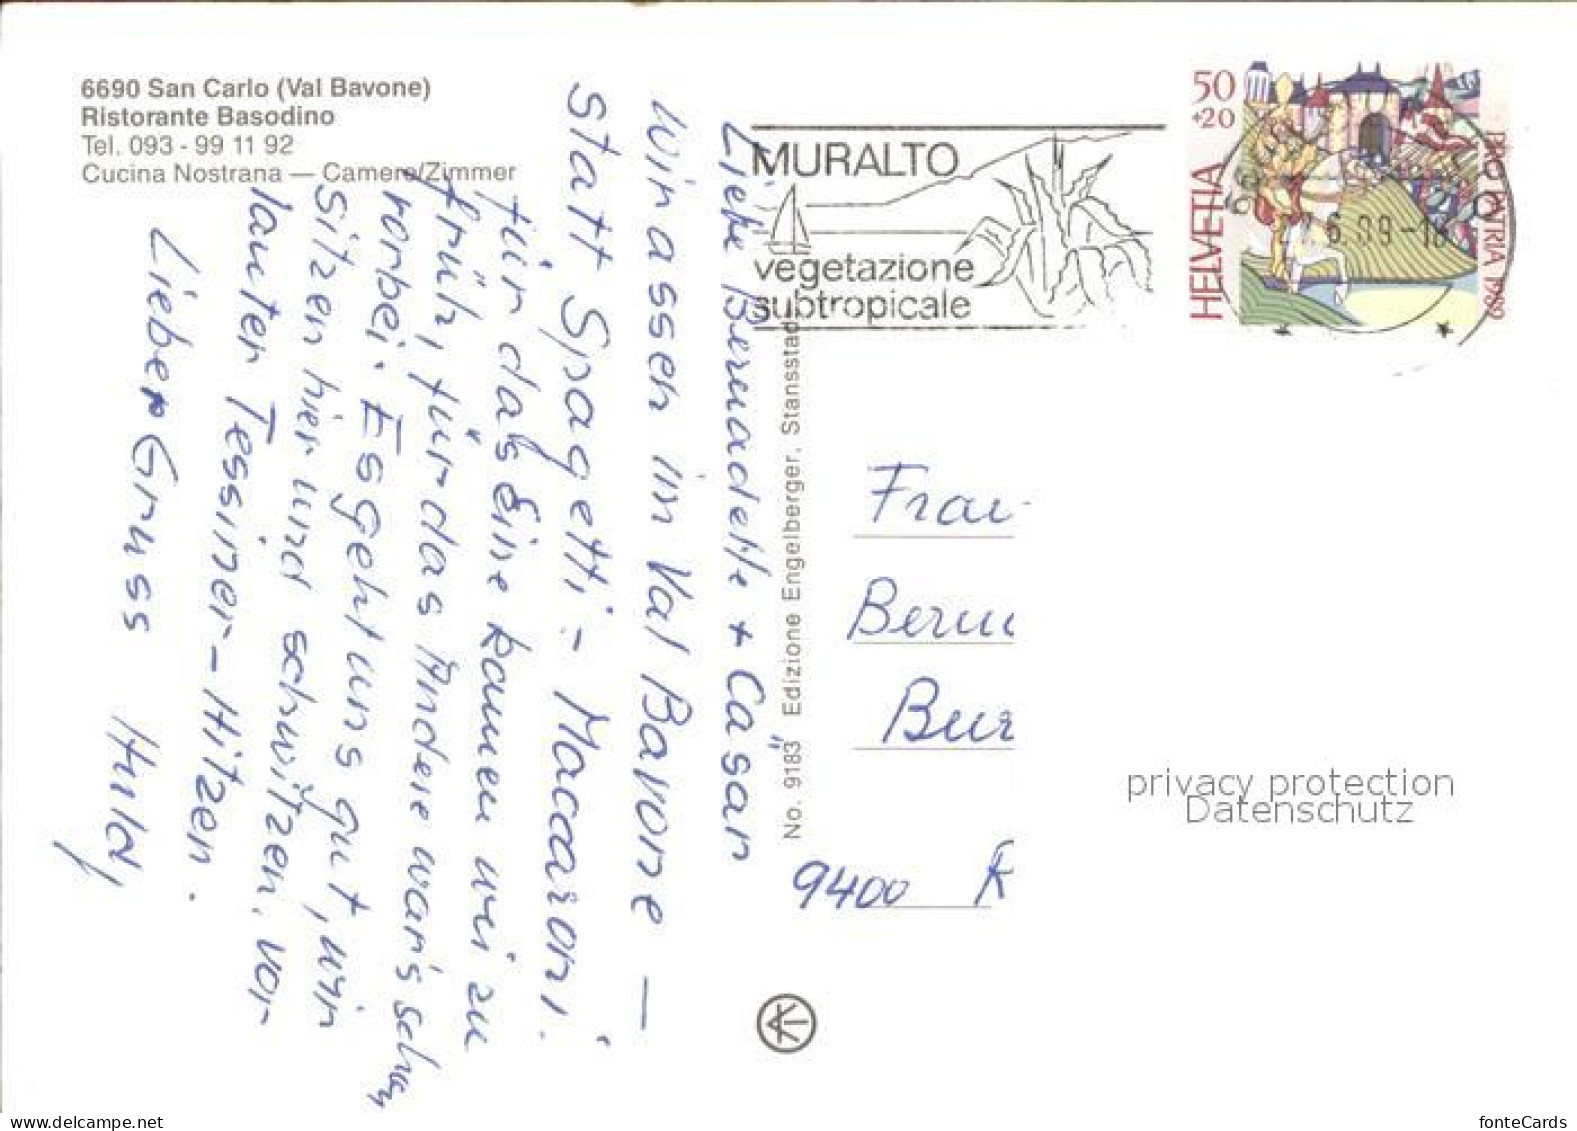 6690 San Carlo (Val Bavone)
Ristorante Basodino
Tel. 093 - 99 11 92
Cucina Nostrana — Camere/Zimmer
Liebe Bernadette + Cäsar
wir assen in Val Bavone –
statt Spagetti - Maccaroni.
für das Eine kamen wir zu
früh, für das Andere war's schon
vorbei. Es geht uns gut, wir
sitzen hier und schwitzen, vor
lauter Tessiner-Hitzen.
Lieber Gruss Hildy
No. 9183 Edizione Engelberger, Stansstad
MURALTO
vegetazione
subtropicale
50
+20
HELVETIA
PRO PATRIA 1989
6.89-18
Frau
Bern
Bur
9400 R
privacy protection
Datenschutz
www.delcampe.net
fonteCards